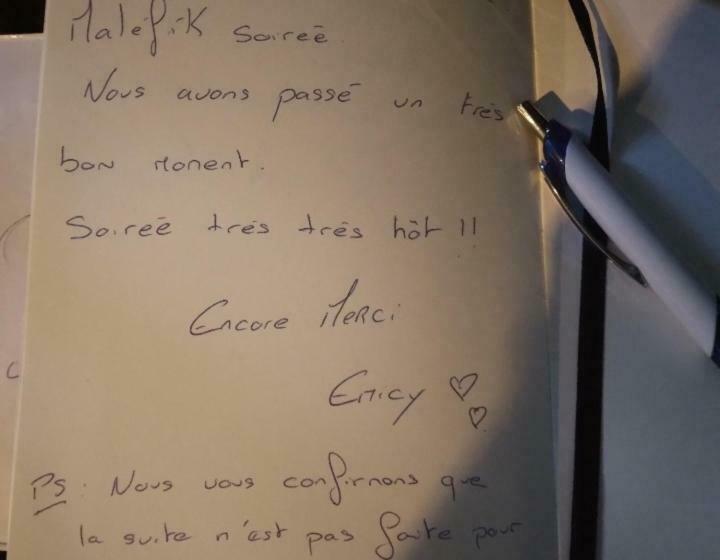 Maléfik Soireé
Nous avons passé un très
bon moment.
Soireé très très hôt !!
Encore Merci
Emicy ♡
♡
PS : Nous vous confirmons que
la suite n'est pas faite pour